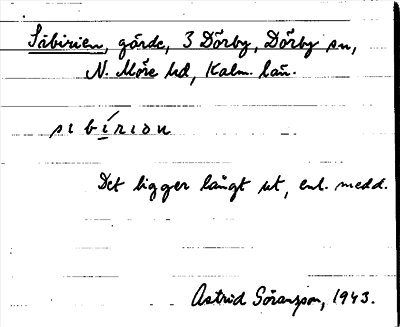 Sibirien, gärde, 3 Dörby, Dörby sn,
N. Möre hd, Kalm. län.
sıbírıon
Det ligger långt ut, enl. medd.
Astrid Göranzson, 1943.